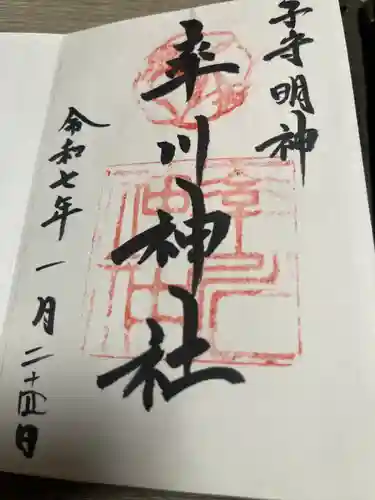 子守明神
率川神社
令和七年一月二十四日